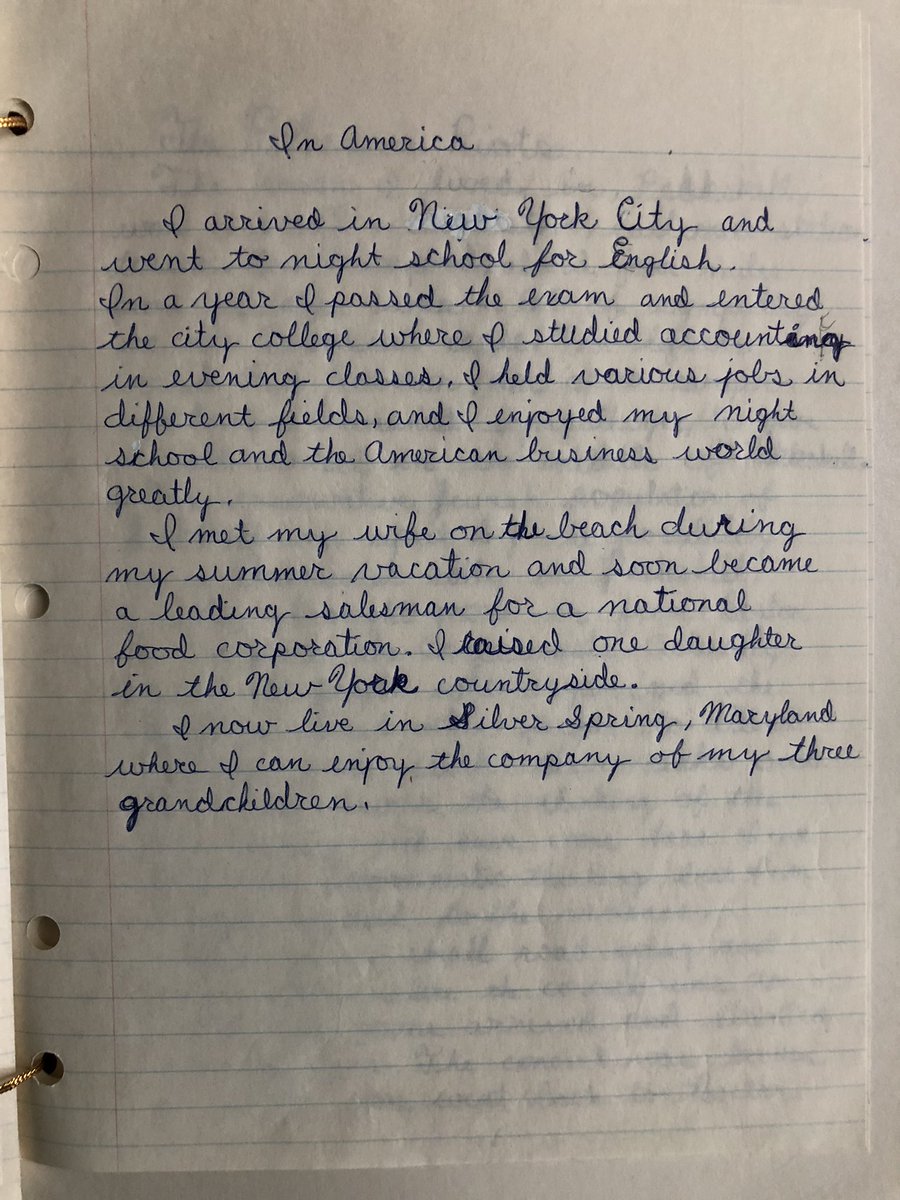 In America
I arrived in New York City and
went to night school for English.
In a year I passed the exam and entered
the city college where I studied accounting
in evening classes. I held various jobs in
different fields, and I enjoyed my night
school and the American business world
greatly.
I met my wife on the beach during
my summer vacation and soon became
a leading salesman for a national
food corporation. I raised one daughter
in the New York countryside.
I now live in Silver Spring, Maryland
where I can enjoy the company of my three
grandchildren.